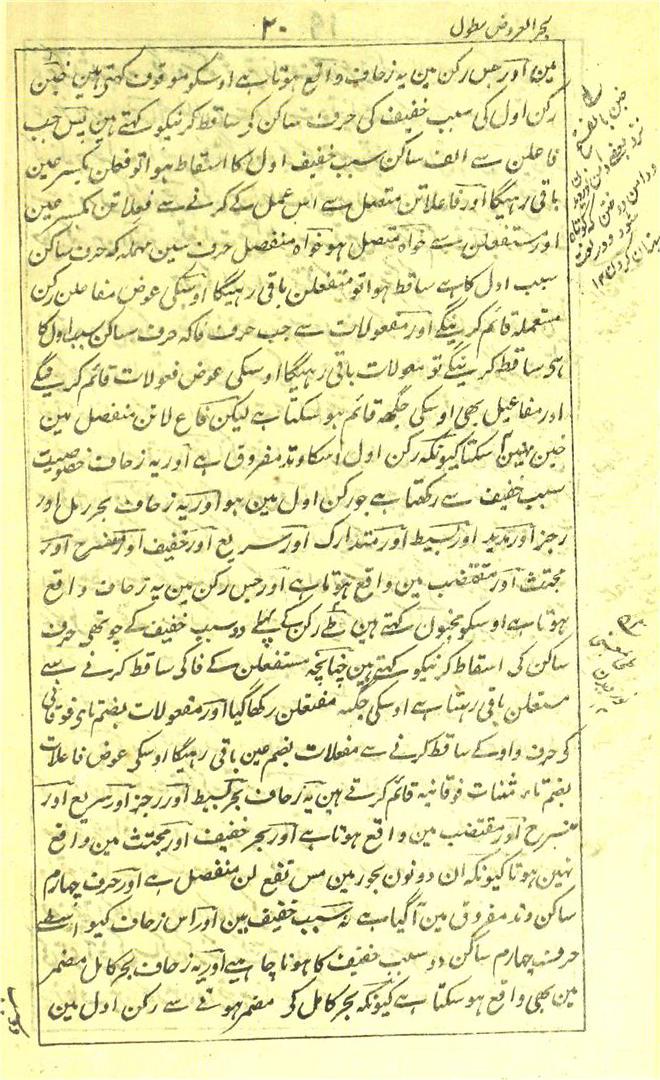 بحر العروض مطول ۲۰
مین اور جس رکن مین یہ زحاف واقع ہوتا ہے اوسکو موقوف کہتی ہین خبن
رکن اول کی سبب خفیف کی حرف ساکن کی ساقط کرنیکو کہتے ہین پس جب
فاعلن سے الف ساکن سبب خفیف اول کا اسقاط ہوا تو فعلن بکسر عین
باقی رہیگا اور فاعلاتن متصل سے اس عمل کے کرنے سے فعلاتن بکسر عین
اور مستفعلن سے خواہ متصل ہو خواہ منفصل حرف سین مہملہ کہ حرف ساکن
سبب اول کا ہے ساقط ہوا تو متفعلن باقی رہیگا اوسکی عوض مفاعلن رکن
مستعملہ قائم کرینگے اور مفعولات سے جب حرف فا کہ حرف ساکن سبب اول کا
ہی ساقط کرینگے تو معولات باقی رہیگا اوسکی عوض فعولات قائم کرینگے
اور مفاعیل بھی اوسکی جگھہ قائم ہو سکتا ہے لیکن فاع لاتن منفصل مین
خبن نہین آ سکتا کیونکہ رکن اول اسکا وتد مفروق ہے اور یہ زحاف خصوصیت
سبب خفیف سے رکھتا ہے جو رکن اول مین ہو اور یہ زحاف بحر رمل اور
رجز اور مدید اور بسیط اور متدارک اور سریع اور خفیف اور منسرح اور
مجتث اور مقتضب مین واقع ہوتا ہے اور جس رکن مین یہ زحاف واقع
ہوتا ہے اوسکو مخبون کہتے ہین طے رکن کے پہلے دو سبب خفیف کے چوتھی حرف
ساکن کی اسقاط کرنیکو کہتے ہین چنانچہ مستفعلن کے فا کی ساقط کرنے سے
مستعلن باقی رہتا ہے اوسکی جگہہ مفتعلن رکھا گیا اور مفعولات بضم تای فوقانی
کی حرف واو کے ساقط کرنے سے مفعلات بضم عین باقی رہیگا اوسکی عوض فاعلات
بضم تاء مثنات فوقانیہ قائم کرتے ہین یہ زحاف بحر بسیط اور رجز اور سریع اور
منسرح اور مقتضب مین واقع ہوتا ہے اور بحر خفیف اور مجتث مین واقع
نہین ہوتا کیونکہ ان دونون بحور مین مس تفع لن منفصل ہے اور حرف چہارم
ساکن وتد مفروق مین آگیا ہے نہ سبب خفیف مین اور اس زحاف کیواسطے
حرف چہارم ساکن دو سبب خفیف کا ہونا چاہیے اور یہ زحاف بحر کامل مضمر
مین بھی واقع ہو سکتا ہے کیونکہ بحر کامل کی مضمر ہونے سے رکن اول مین
خبن بالفتح